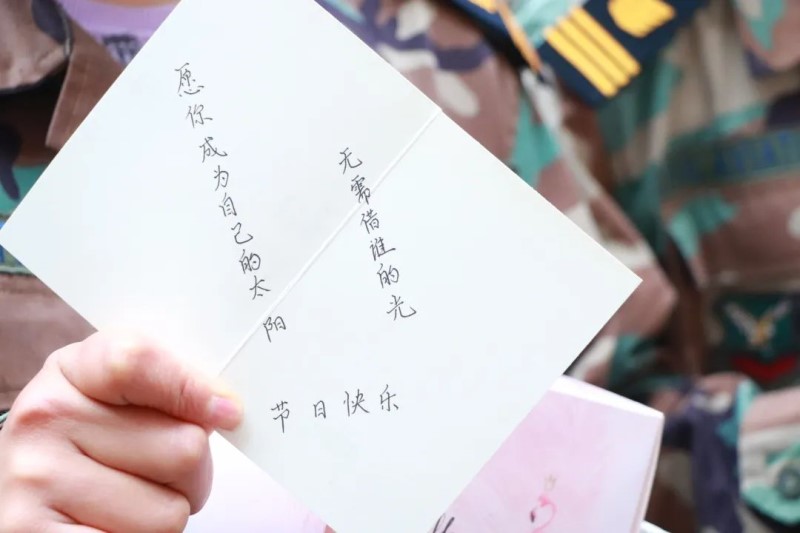 愿你成为自己的太阳
无需借谁的光
节日快乐